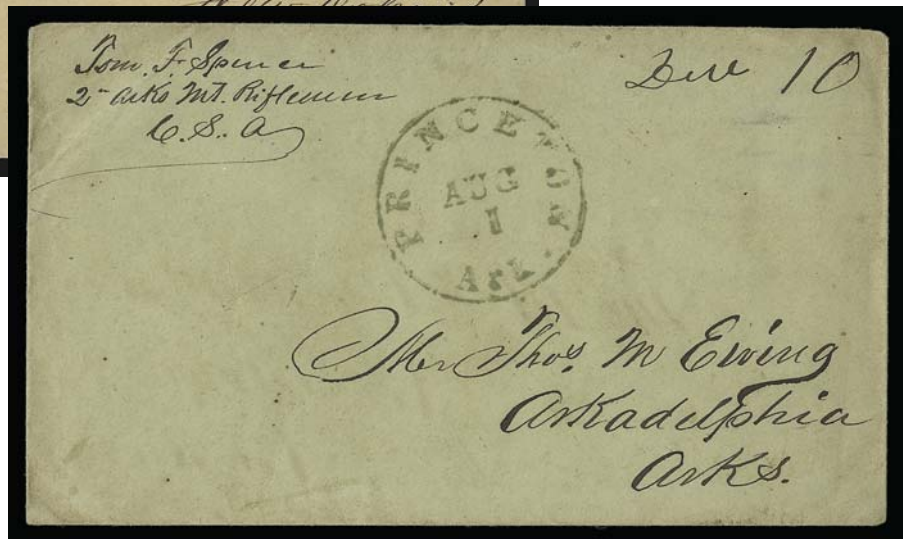 Tom. F. Spencer
2- Arks Mt. Riflemen
C. S. A
Due 10
PRINCETON
AUG
1
Ark.
Mr Thos. M Ewing
Arkadelphia
Arks.